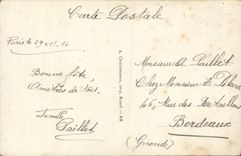 Carte Postale
Paris le 29.12.16
Bonne fête,
Amitiés de tous.
Famille
Paillet
Monsieur A Paillet
Chez Monsieur E.
46, Rue des
Bordeaux
(Gironde)